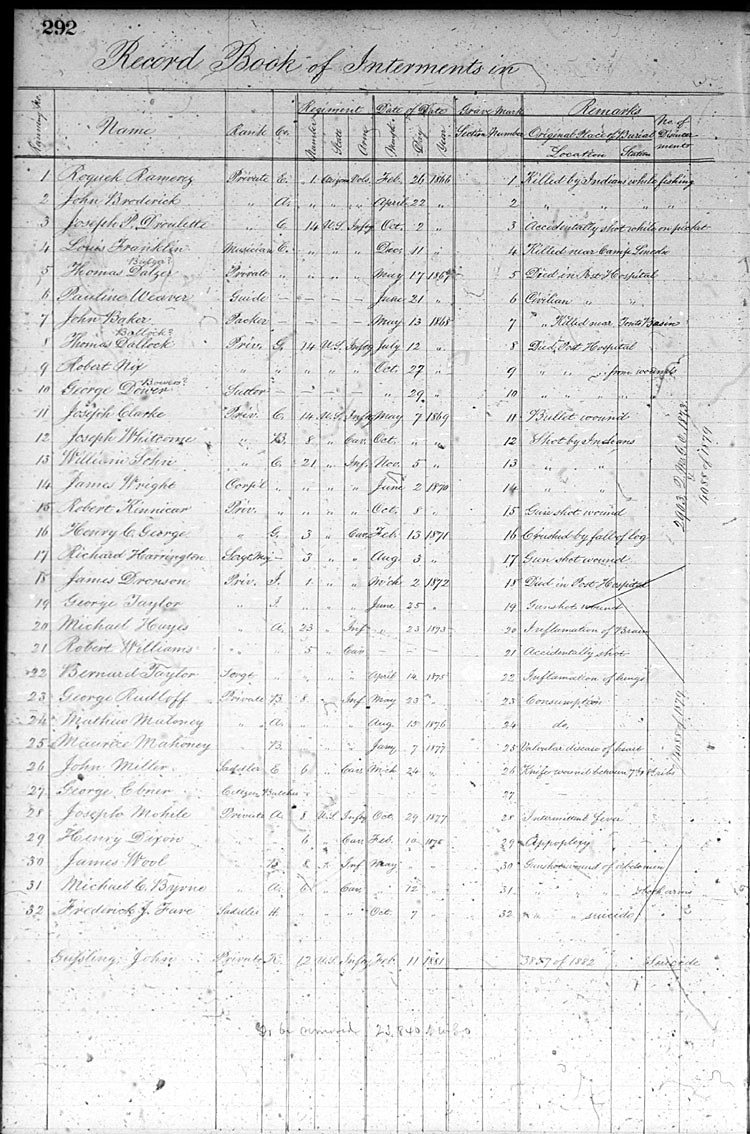 292
Record Book of Interments in
Name Rank Co. Regiment Date of Death Grave Mark Remarks No. of
Number State Arm Month Day Year Section Number Original Place of Burial
Location Station
1 Roquek Ramerez Private E. 1 Arizona Vols. Feb. 26 1866 1 Killed by Indians while fishing
2 John Broderick " A. " " " April 22 " 2 " " " "
3 Joseph P. Droulette " C. 14 U.S. Infty Oct. 2 " 3 Accidentally shot while on picket
4 Louis Franklin Musician C. " " " Dec. 11 " 4 Killed near Camp Lincoln
Balger?
5 Thomas Dalger Private " " " " May 17 1867 5 Died in Post Hospital
6 Pauline Weaver Guide — — — — June 21 " 6 Civilian " "
7 John Baker Packer — — — — May 13 1868 7 " Killed near Tonto Basin
Ballock?
8 Thomas Dallock Priv. G. 14 U.S. Infty July 12 " 8 Died Post Hospital
9 Robert Nix " " " " " Oct. 27 " 9 " " " from wounds
Bowers?
10 George Dower Sutler — — — — " 29 " 10 " " "
11 Joseph Clarke Priv. C. 14 U.S. Infty May 7 1869 11 Bullet wound
12 Joseph Whitcome " B. 8 " Cav. Oct. " " 12 Shot by Indians
13 William John " C. 21 " Inf. Nov. 5 " 13 " " "
14 James Wright Corp'l " " " " June 2 1870 14 " " "
15 Robert Kinnicar Priv. " " " " Oct. 8 " 15 Gun shot wound
16 Henry C. George " G. 3 " Cav. Feb. 13 1871 16 Crushed by fall of log
17 Richard Harrington Sergt Maj — 3 " " Aug. 3 " 17 Gun shot wound
18 James Dronson Priv. I. 1 " " M'ch 2 1872 18 Died in Post Hospital
19 George Taylor " I. " " " June 25 " 19 Gunshot wound
20 Michael Hayes " A. 23 " Inf " 23 1873 20 Inflamation of Brain
21 Robert Williams " " 5 " Cav. — — — 21 Accidentally shot
22 Bernard Taylor Sergt " " " " April 14 1875 22 Inflamation of lungs
23 George Rudloff Private B. 8 " Inf May 23 " 23 Consumption
24 Mathew Maloney " A. " " " Aug. 15 1876 24 do,
25 Maurice Mahoney B. " " " Jany. 7 1877 25 Valvular disease of heart
26 John Miller Saddler E 6 " Cav. M'ch 24 " 26 Knife wound between 7th & 8th ribs
27 George Ebner Citizen Butcher — — — — — 27 —
28 Joseph Mohile Private A. 8 U.S. Infty Oct. 29 1877 28 Intermittent fever
29 Henry Dixon " " 6 " Cav. Feb. 10 1878 29 Appoplexy
30 James Wool B. 8 " Inf May 30 Gunshot wound of abdomen
31 Michael C. Byrne A. 6 " Cav. " 12 " 31 " "
32 Frederick J. Fave Saddler H. " " " Oct. 7 " 32 " " suicide
Gussling, John Private K. 12 U.S. Infty Feb. 11 1881 3857 of 1882 Suicide
To be removed
4055 of 1879
4055 of 1879